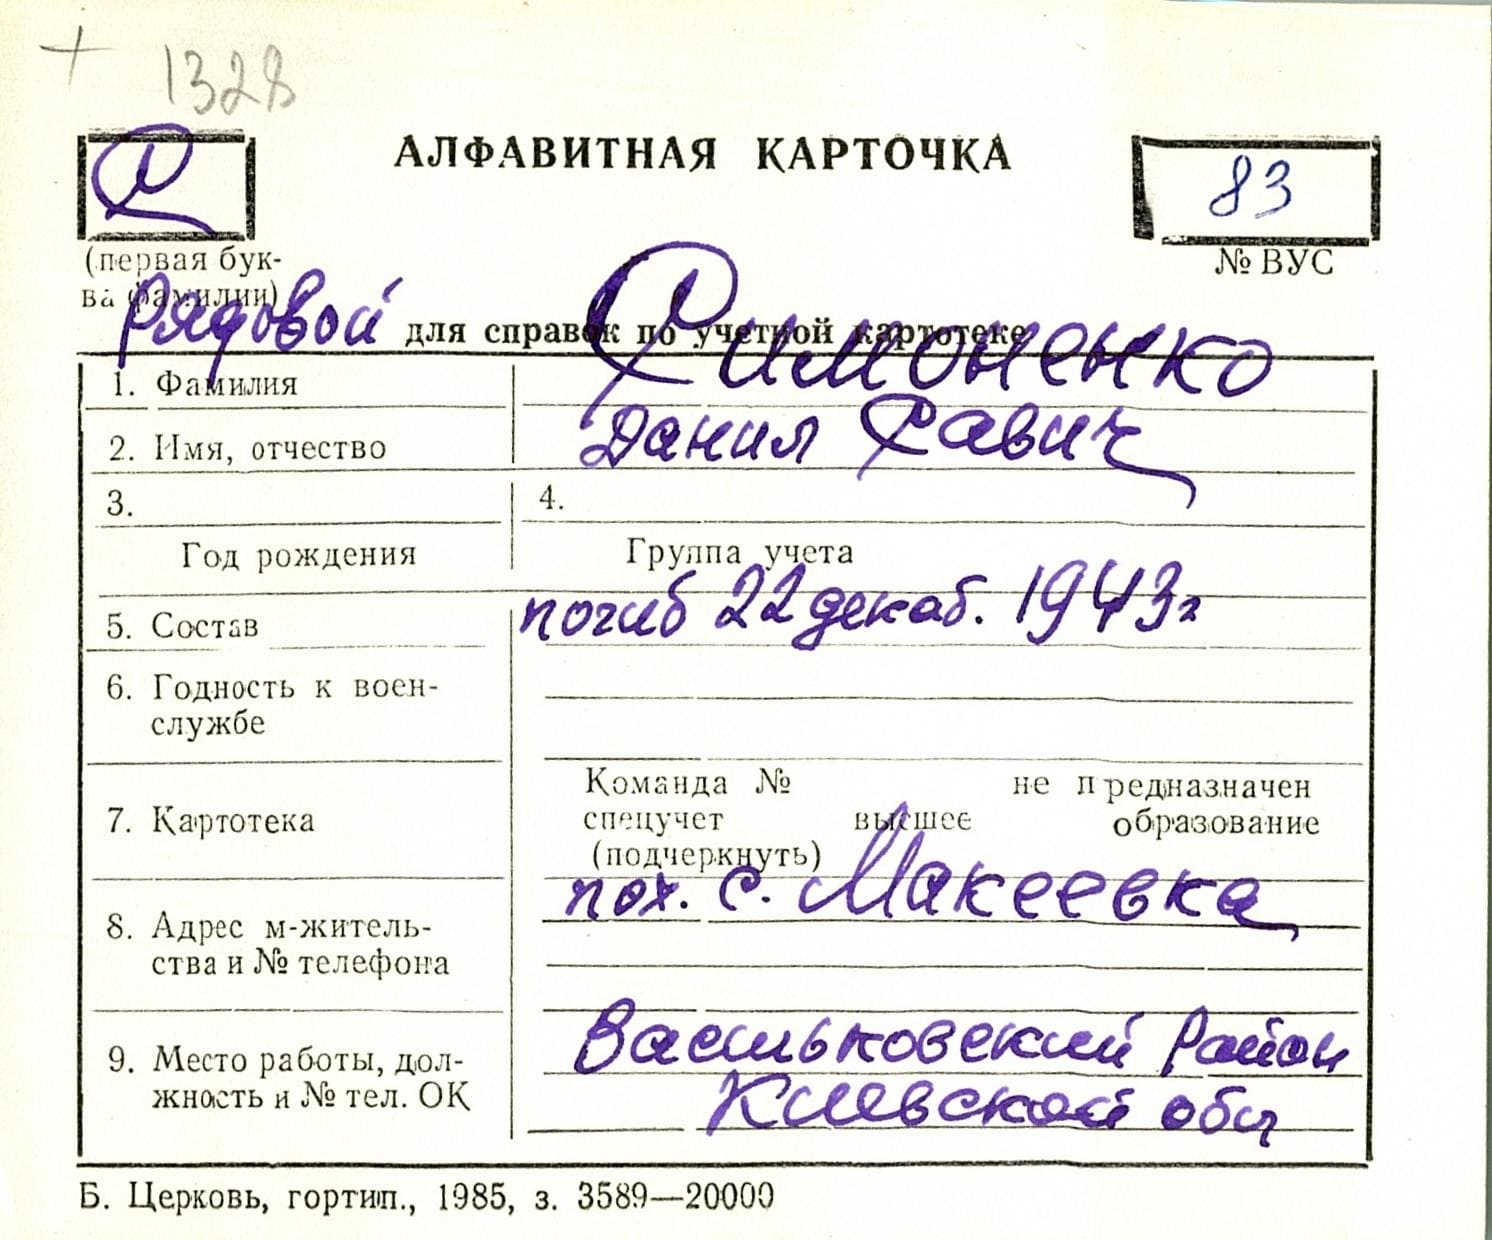 + 1328
С
АЛФАВИТНАЯ КАРТОЧКА
83
(первая бук-
ва фамилии)
№ ВУС
Рядовой
для справок по учетной картотеке
1. Фамилия
Симоненко
2. Имя, отчество
Данил Савич
3.
4.
Год рождения
Группа учета
5. Состав
погиб 22 декаб. 1943 г
6. Годность к воен-
службе
7. Картотека
Команда № не предназначен
спецучет высшее образование
(подчеркнуть)
пох. с. Макеевка
8. Адрес м-житель-
ства и № телефона
9. Место работы, дол-
жность и № тел. ОК
Васильковский район
Киевской обл
Б. Церковь, гортип., 1985, з. 3589—20000